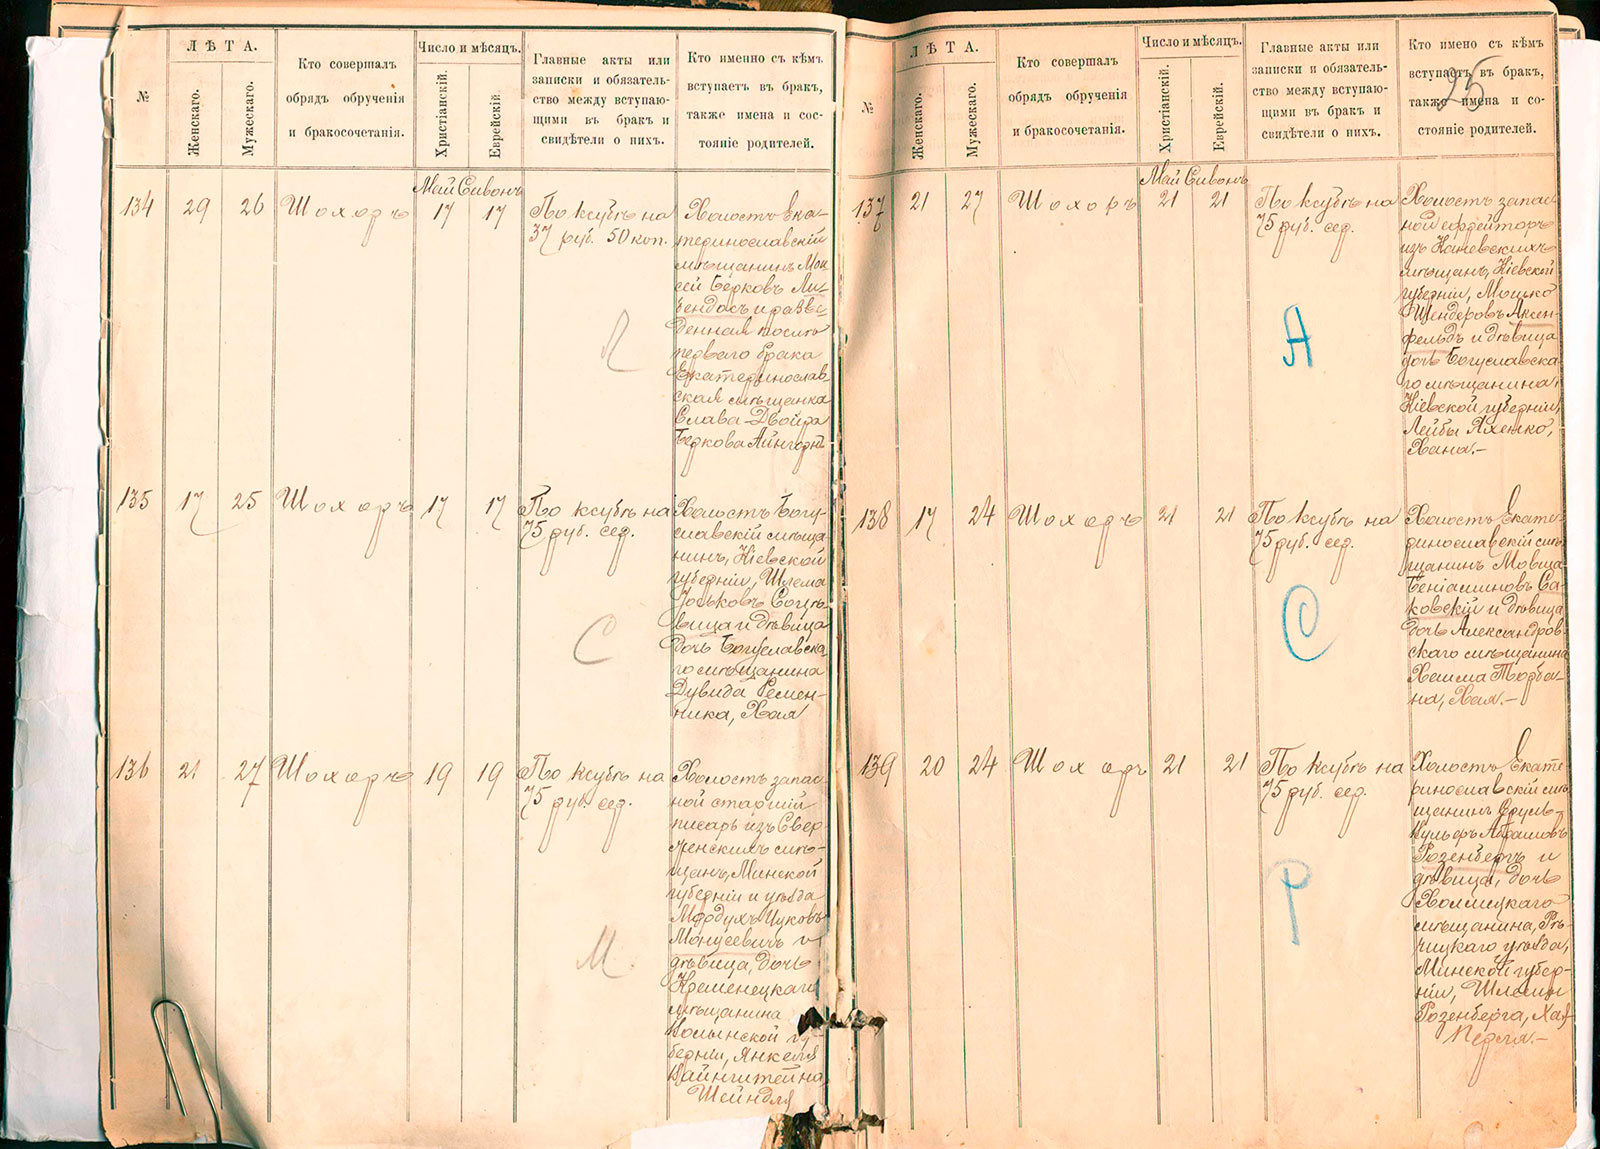 №
ЛѢТА.
Женскаго.
Мужескаго.
Кто совершалъ
обрядъ обрученія
и бракосочетанія.
Число и мѣсяцъ.
Христіанскій.
Еврейскій.
Главные акты или
записки и обязатель-
ство между вступаю-
щими въ бракъ и
свидѣтели о нихъ.
Кто именно съ кѣмъ
вступаетъ въ бракъ,
также имена и сос-
тояніе родителей.
Май Сивонъ
134 29 26 Шохоръ 17 17
По ксубѣ на
37 руб. 50 коп.
Холостъ Ека-
теринославскій
мѣщанинъ Мои
сей Берковъ
и разве-
денная послѣ
перваго брака
Екатеринослав-
ская мѣщанка
Слава-Двойра
Беркова Айнгорнъ
Л
135 17 25 Шохоръ 17 17
По ксубѣ на
75 руб. сер.
Холостъ Богу-
славскій мѣща-
нинъ, Кіевской
губерніи, Шлема
Іоськовъ
и дѣвица
дочь Богуславска-
го мѣщанина
Дувида Ремен-
ника, Хая
С
136 21 27 Шохоръ 19 19
По ксубѣ на
75 руб. сер.
Холостъ запас-
ной старшій
писарь изъ Свер-
женскихъ мѣ-
щанъ, Минской
губерніи и уѣзда
Мордухъ Ицковъ
Монусевичъ и
дѣвица, дочь
Кременецкаго
мѣщанина
Волынской гу-
берніи, Янкеля
Вайнштейна
Шейндля
М
25
№
ЛѢТА.
Женскаго.
Мужескаго.
Кто совершалъ
обрядъ обрученія
и бракосочетанія.
Число и мѣсяцъ.
Христіанскій.
Еврейскій.
Главные акты или
записки и обязатель-
ство между вступаю-
щими въ бракъ и
свидѣтели о нихъ.
Кто имено съ кѣмъ
вступаетъ въ бракъ,
также имена и со-
стояніе родителей.
Май Сивонъ
137 21 27 Шохоръ 21 21
По ксубѣ на
75 руб. сер.
Холостъ запас-
ной ефрейторъ
изъ Каневскихъ
мѣщанъ, Кіевской
губерніи, Мошко
Шендеровъ Аксен-
фельдъ и дѣвица
дочь Богуславска-
го мѣщанина,
Кіевской губерніи,
Лейбы Яхенко,
Хана.-
А
138 17 24 Шохоръ 21 21
По ксубѣ на
75 руб. сер.
Холостъ Екате-
ринославскій мѣ-
щанинъ Мовша
Беніаминовъ Са-
ковскій и дѣвица
дочь Александров-
скаго мѣщанина
Хаима Торба-
на, Хая.-
С
139 20 24 Шохоръ 21 21
По ксубѣ на
75 руб. сер.
Холостъ Екате-
ринославскій мѣ-
щанинъ Сруль-
Вульфъ Абрамовъ
Розенбергъ и
дѣвица, дочь
Холмецкаго
мѣщанина, Рѣ-
чицкаго уѣзда,
Минской губер-
ніи, Шлемы
Розенберга, Хая-
Перля.-
Р